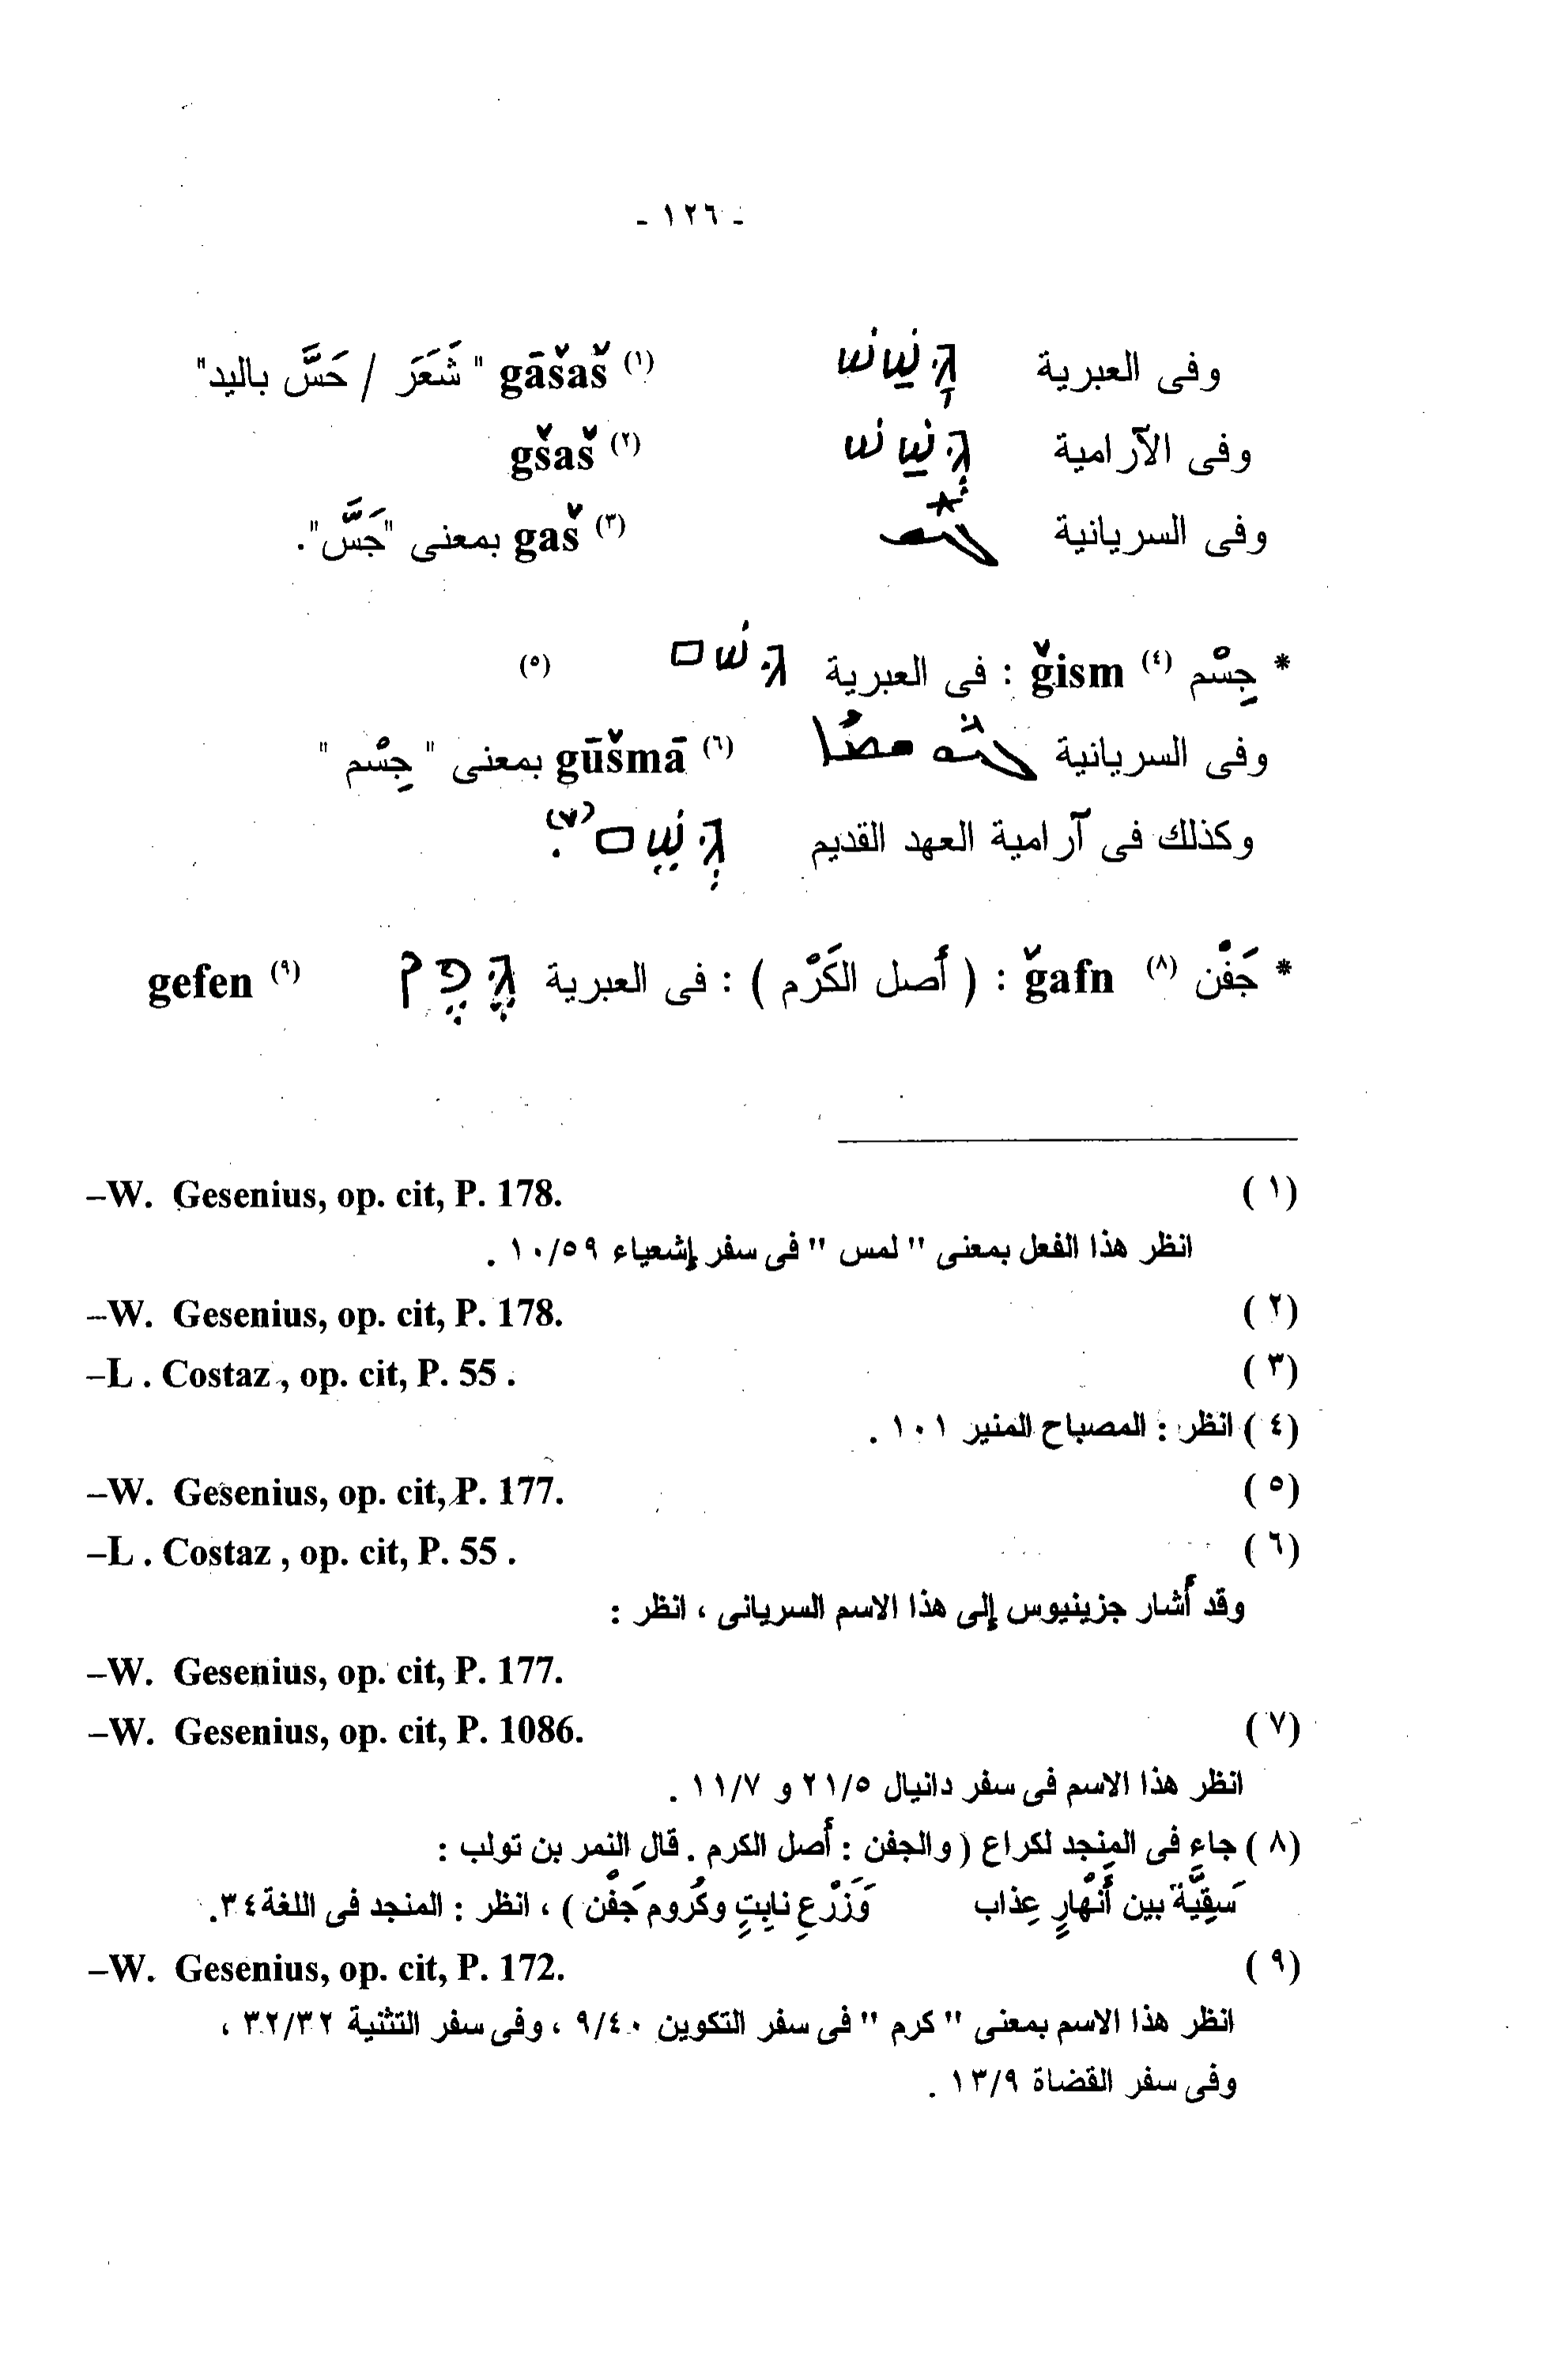 - ١٢٦ -
وفى العبرية גָּשַׁשׁ gāšaš (١) " شَعَرَ / حَسَّ باليد"
وفى الآرامية גְּשַׁשׁ gšaš (٢)
وفى السريانية gaš (٣) بمعنى "جَسَّ".
* جِسْم (٤) ǧism : فى العبرية גּשׁם (٥)
وفى السريانية gūšmā (٦) بمعنى " جِسْم "
وكذلك فى آرامية العهد القديم גְּשֵׁם (٧).
* جَفْن (٨) ǧafn : ( أصل الكَرْم ) : فى العبرية גֶּפֶן gefen (٩)
(١) –W. Gesenius, op. cit, P. 178.
انظر هذا الفعل بمعنى " لمس " فى سفر إشعياء ١٠/٥٩ .
(٢) –W. Gesenius, op. cit, P. 178.
(٣) –L . Costaz , op. cit, P. 55 .
(٤) انظر : المصباح المنير ١٠١ .
(٥) –W. Gesenius, op. cit, P. 177.
(٦) –L . Costaz , op. cit, P. 55 .
وقد أشار جزينيوس إلى هذا الاسم السريانى ، انظر :
–W. Gesenius, op. cit, P. 177.
(٧) –W. Gesenius, op. cit, P. 1086.
انظر هذا الاسم فى سفر دانيال ٢١/٥ و ١١/٧ .
(٨) جاء فى المنجد لكراع ( والجفن : أصل الكرم . قال النمر بن تولب :
سَقِيَّة بين أَنْهارٍ عِذاب وَزَرْعِ نابِتٍ وكُروم جَفْن ) ، انظر : المنجد فى اللغة ٣٤.
(٩) –W. Gesenius, op. cit, P. 172.
انظر هذا الاسم بمعنى " كرم " فى سفر التكوين ٩/٤٠ ، وفى سفر التثنية ٣٢/٣٢ ،
وفى سفر القضاة ١٣/٩ .